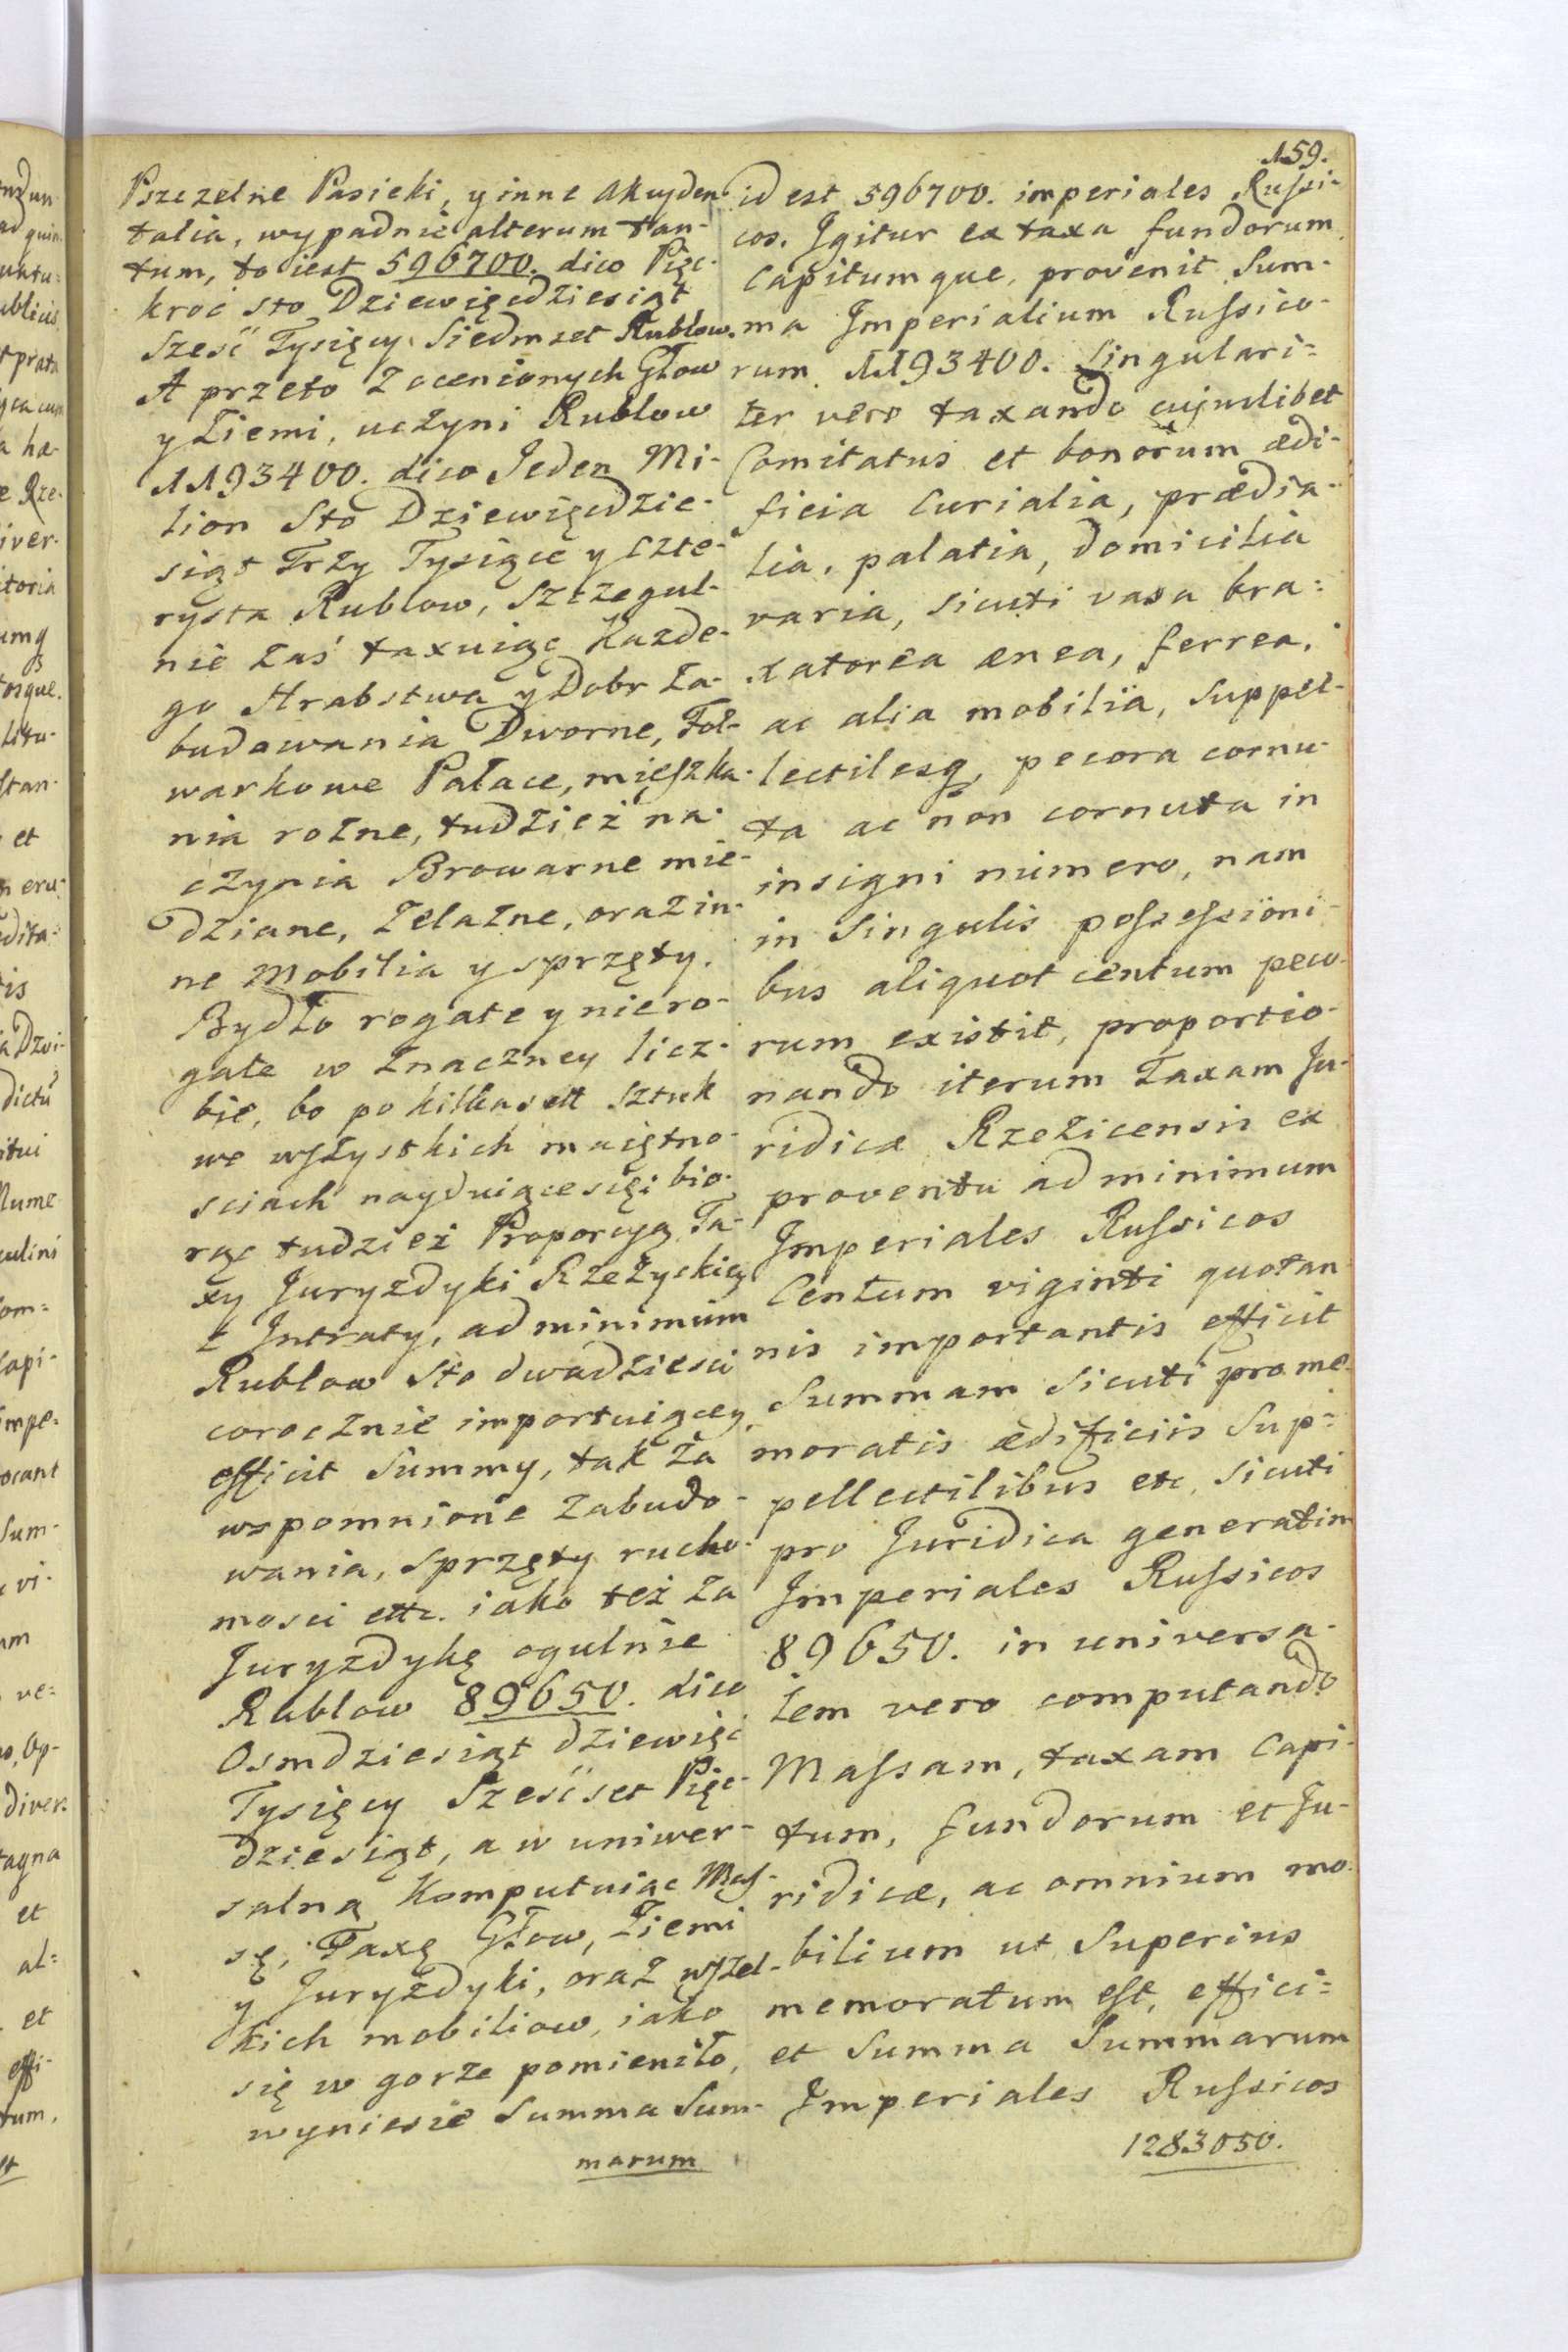 159.
Pszczelne Pasieki, y inne Akcyden-
talia, wypadnie alterum tan-
tum, to iest 596700. dico Pięc-
kroć sto Dziewięcdziesiąt
Sześć Tysięcy Siedmset Rublow.
A przeto z ocenionych Głow
y Ziemi, uczyni Rublow
1193400. dico Jeden Mi-
lion Sto Dziewięcdzie-
siąt Trzy Tysiące y Czte-
rysta Rublow, Szczegul-
nie zaś taxuiąc Kazde-
go Hrabstwa y Dobr Za-
budowania Dworne, Fol-
warkowe Pałace, mięszka-
nia rozne, tudziez na-
czynia Browarne mie-
dziane, Zelazne, oraz in-
ne Mobilia y sprzęty.
Bydło rogate y niero-
gate w znaczney licz-
bie, bo po kilkasett sztuk
we wszystkich maiętno-
sciach nayduiące się; bio-
rąc tudzież Proporcyą Ta-
xy Juryzdyki Rzezyckiey
z Intraty, ad minimum
Rublow Sto dwadziesci
corocznie importuiącey,
efficit Summy, tak za
wspomnione Zabudo-
wania, sprzęty rucho-
mosci ettc. iako też za
Juryzdykę ogulnie
Rublow 89650. dico
Osmdziesiąt dziewięć
Tysięcy Sześćset Pięc-
dziesiąt, a w uniwer-
salną Komputuiąc Mas-
sę, Taxę Głow, Ziemi
y Juryzdyki, oraz wszel-
kich mobiliow, iako
się w gorze pomieniło,
wyniesie Summa Sum-
marum
id est 596700. imperiales Russi-
cos. Igitur ex taxa fundorum
Capitumque, provenit Sum-
ma Imperialium Russico-
rum 1193400. Singulari-
ter vero taxando cujuslibet
Comitatus et bonorum ædi-
ficia Curialia, prædia-
lia, palatia, domicilia
varia, sicuti vasa bra-
xatorea ænea, ferrea,
ac alia mobilia, suppel-
lectilesq, pecora cornu-
ta ac non cornuta in
insigni numero, nam
in singulis possessioni-
bus aliquot centum peco-
rum existit, proportio-
nando iterum Taxam Ju-
ridicæ Rzezicensis ex
proventu ad minimum
Imperiales Russicos
Centum viginti quotan-
nis importantis efficit
Summam sicuti pro me-
moratis ædificiis Sup-
pellectilibus etc, sicuti
pro Juridica generatim
Imperiales Russicos
89650. in universa-
lem vero computando
Massam, taxam Capi-
tum, fundorum et Ju-
ridicæ, ac omnium mo-
bilium ut Superius
memoratum est, effici-
et Summa Summarum
Imperiales Russicos
1283050.